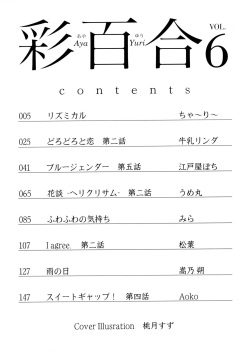 彩百合 VOL. 6
あや ゆり
Aya Yuri
contents
005 リズミカル ちゃ〜り〜
025 どろどろと恋 第二話 牛乳リンダ
041 ブルージェンダー 第五話 江戸屋ぽち
065 花談 -ヘリクリサム- 第二話 うめ丸
085 ふわふわの気持ち みら
107 I agree. 第二話 松葉
127 雨の日 嵩乃朔
147 スイートギャップ！ 第四話 Aoko
Cover Illustration 桃月すず